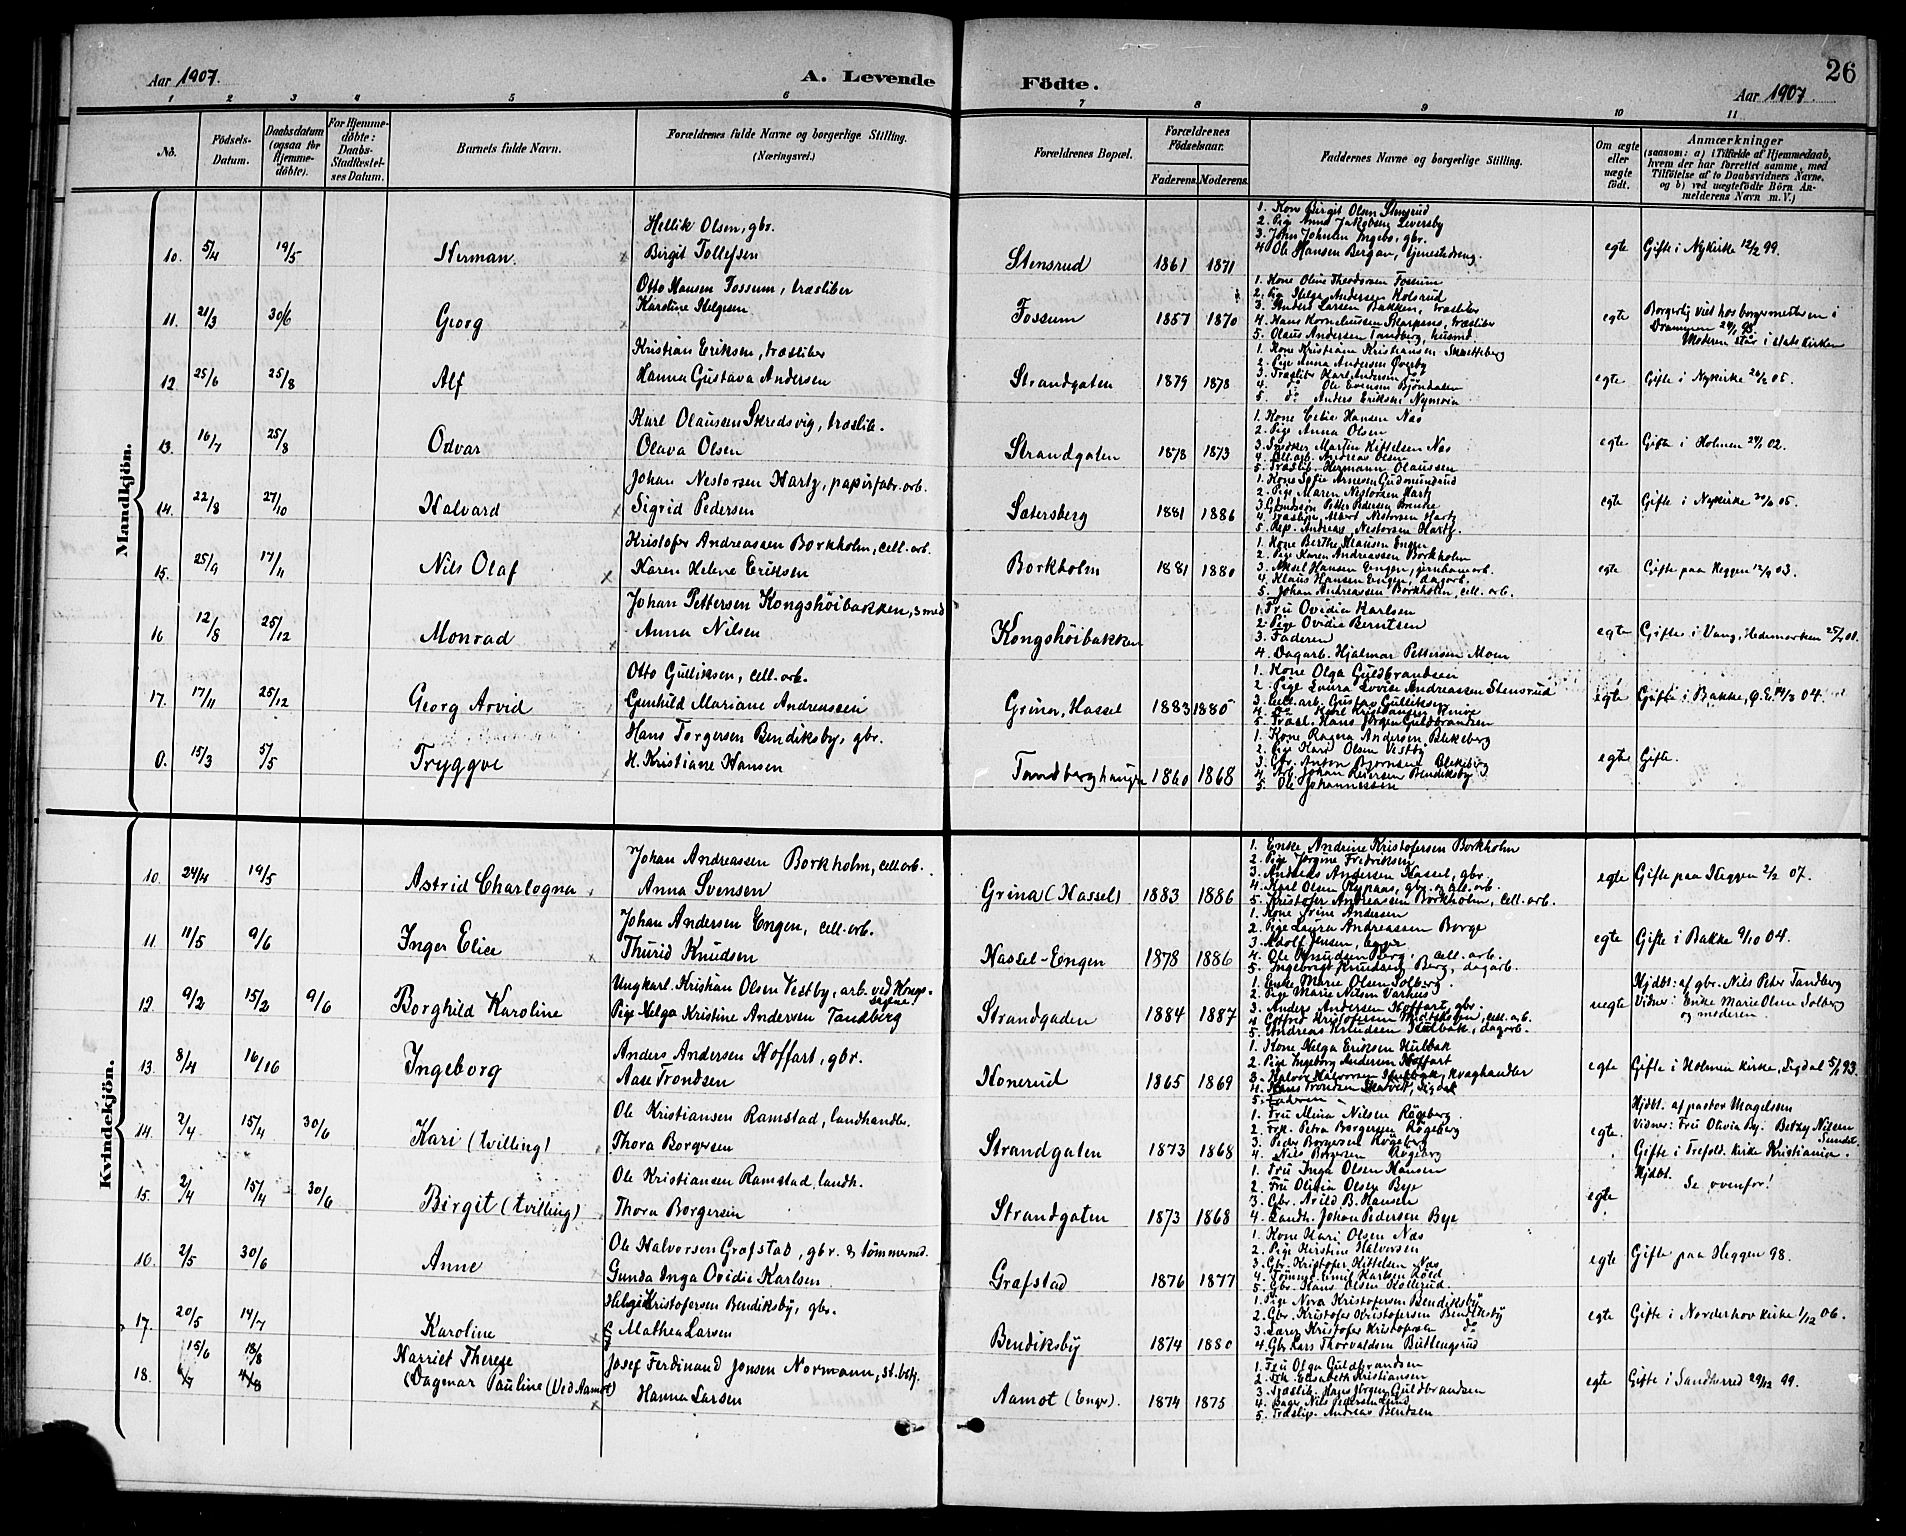 Aar 1907.
A. Levende Födte.
26
Aar 1907.
1 2 3 4 5 6 7 8 9 10 11
No.
Födsels-Datum.
Daabsdatum (ogsaa for Hjemme-döbte).
For Hjemme-döbte: Daabs-Stadfæstel-ses Datum.
Barnets fulde Navn.
Forældrenes fulde Navne og borgerlige Stilling.
(Næringsvei.)
Forældrenes Bopæl.
Forældrenes Födselsaar.
Faderens. Moderens.
Faddernes Navne og borgerlige Stilling.
Om ægte eller uægte födt.
Anmærkninger
(saasom: a) i Tilfælde af Hjemmedaab, hvem der har forrettet samme, med Tilföielse af to Daabsvidners Navne, og b) ved uægtefödte Börn Anmelderens Navn m. V.)
Mandkjön.
10. 5/4 19/5 Herman.
Hellik Olsen, gbr.
Birgit Tollefsen
Stensrud 1861 1871
1. Kone Birgit Olsen Stensrud
2. Pige Anna Jakobsen Leversby
3. John Johnsen Ingebo, gbr.
4 Ole Hansen Bergan, tjenestedreng.
egte Gifte i Nykirke 12/2 99.
11. 21/3 30/6 Georg
Otto Hansen Fossum, træsliber
Karoline Helgesen
Fossum 1857 1870
1. Kone Oline Theodorsen Fossum
2. Pige Helga Andersen Kolsrud
3. Anders Larsen Bakken, træsliber
4. Hans Korneliussen Skarpens, træsliber
5. Olaus Andersen Tandberg, husmd.
egte Borgerlig viet hos borgermesteren i
Drammen 24/1 98.
Moderen står i statskirken
12 25/6 25/8 Alf
Kristian Eriksen, træsliber
Hanna Gustava Andersen
Strandgaten 1879 1878
1. Kone Kristiane Kristiansen
2. Pige Anna Andersen Øveby
3. Træslib. Karl Andersen do
4. do Ole Evensen Bjöndalen
5. do Anders Eriksen Nymoen
egte Gifte i Nykirke 26/2 05.
13. 16/7 25/8 Odvar
Karl Olaussen Skredsvig, træslib.
Olava Olsen
Strandgaten 1878 1873
1. Kone Celia Hansen Næs
2. Pige Anna Olsen
3. Snedker Martin Kittelsen Næs
4. Cell.arb. Andreas Olsen
5. Træslib. Hermann Olaussen
egte Gifte i Holmen 24/1 02.
14. 22/8 27/10 Halvard
Johan Nestorsen Hartz, papirfabr. arb.
Sigrid Pedersen
Sætersberg 1881 1886
1. Kone Sofie Arnesen Gudmundsrud
2. Pige Maren Nestorsen Hartz
3. Grundsön Petter Pedersen Brenne
4. Træslip. Albert Nestorsen Hartz
5. Rep. Andreas Nestorsen Hartz.
egte Gifte i Nykirke 20/6 05.
15. 25/9 17/11 Nils Olaf
Kristofer Andreassen Borkholm, cell. arb.
Karen Helene Eriksen
Borkholm 1881 1880
1. Kone Berthe Klausen Engen
2. Pige Karen Andreassen Borkholm
3. Aksel Hansen Engen, jernbanearb.
4. Klaus Hansen Engen, dagarb.
5. Johan Andreassen Borkholm, cell. arb.
egte Gifte paa Heggen 12/9 03.
16 12/8 25/12 Monrad
Johan Pettersen Kongshöibakken, smed
Anna Nilsen
Kongshöibakken
1. Fru Ovidia Karlsen
2. Pige Ovidia Berntsen
3. Faderen
4. Dagarb. Hjalmar Pettersen Moen
egte Gifte i Vang, Hedemarken 25/4 01.
17. 17/11 25/12 Georg Arvid
Otto Gulliksen, cell. arb.
Gunhild Mariane Andreassen
Grina, Hassel 1883 1885
1. Kone Olga Guldbrandsen
2. Pige Laura Lovise Andreassen Stensrud
3. Cell. arb. Gustav Gulliksen
4. do Karl Kristiansen Kniive
5. Træsl. Hans Jörgen Guldbrandsen
egte Gifte i Bakke, Ø.E. 14/3 04.
0. 15/3 5/5 Tryggve
Hans Torgersen Bendiksby, gbr.
M. Kristiane Hansen
Tandberghaugen 1860 1868
1. Kone Ragna Andersen Blekeberg
2. Pige Kari Olsen Vestby
3. Gbr. Anton Bjornsen Blekeberg
4. Arb. Johan Reiersen Bendiksby
5. Ole Johannessen
egte Gifte.
Kvindekjön.
10. 24/4 19/5 Astrid Charlogna
Johan Andreassen Borkholm, cell. arb.
Anna Svensen
Grina (Hassel) 1883 1886
1. Enke Andrine Kristofersen Borkholm
2. Pige Jörgine Fredriksen
3. Andreas Andersen Hassel, gbr.
4. Karl Olsen Rypaas, gbr. og cell. arb.
5. Kristofer Andreassen Borkholm, cell. arb.
egte Gifte paa Heggen 2/2 07.
11. 11/5 9/6 Inger Elise
Johan Andersen Engen, cell. arb.
Thurid Knudsen
Hassel-Engen 1878 1886
1. Kone Trine Andersen
2. Pige Laura Andreassen Borge
3. Adolf Jensen,
4. Ole Knudsen Berg, cell. arb.
5. Ingebrigt Knudsen Berg, dagarb.
egte Gifte i Bakke 9/10 04.
12. 9/2 15/2 9/6 Borghild Karoline
Ungkarl. Kristian Olsen Vestby, arb. ved Kongssagene!
Pige Helga Kristine Andersen Tandberg
Strandgaden 1884 1887
1. Enke Marie Olsen Solberg.
2. Pige Marie Nilsen Varhus
3. Anders Andersen Hoffart, gbr.
4. Gotfred Kristofersen cell. arb.
5. Andreas Knudsen Hulbak, dagarb.
uegte Hjdbt: af gbr. Nils Peter Tandberg
Vidner: Enke Marie Olsen Solberg
og moderen.
13. 8/4 16/16 Ingeborg
Anders Andersen Hoffart, gbr.
Aase Trondsen
Honerud 1865 1869
1. Kone Helga Eriksen Hulbak
2. Pige Ingeborg Andersen Hoffart
3. Halvor Halvorsen Hulbak, kvaghandler
4. Hans Trondsen Sigdal
5. Faderen
egte Gifte i Holmen kirke, Sigdal 5/1 93.
14. 2/4 15/4 30/6 Kari (tvilling)
Ole Kristiansen Ramstad, landhandler.
Thora Borgersen
Strandgaten 1873 1868
1. Fru Mina Nilsen Rögeberg.
2. Frk. Petra Borgersen Rögeberg
3. Peder Borgersen Rögeberg
4. Nils Borgersen Rögeberg
egte. Hjdbt. af pastor Magelssen
Vidner: Fru Olivia By. Betzey Nilsen
Sundet.
Gifte i Trefold. kirke Kristiania.
15. 2/4 15/4 30/6 Birgit (tvilling)
Ole Kristiansen Ramstad, landh.
Thora Borgersen
Strandgaten 1873 1868
1. Fru Inga Olsen Hansen
2. Fru Olivia Olsen Bye
3. Gbr. Arild B. Hansen
4. Landh. Johan Pedersen Bye
egte Hjdbt.
Se ovenfor!
16. 2/5 30/6 Anne
Ole Halvorsen Grafstad, gbr. & tömmermd.
Gunda Inga Ovidia Karlsen
Grafstad 1876 1877
1. Kone Kari Olsen Næs
2. Pige Kirstine Halvorsen
3. Gbr. Kristofer Kittelsen Næs
4. Tömmer. Emil Karlsen Loed
5. Gbr. Hans Olsen Kollerud
egte Gifte paa Heggen 98.
17. 20/5 14/7 Karoline
Helge Kristofersen Bendiksby, gbr.
Mathea Larsen
Bendiksby 1874 1880
1. Pige Nora Kristofersen Bendiksby
2. Gbr. Kristofer Kristofersen Bendiksby
3. Lars Kristofer Kristofersen do
4. Gbr. Lars Thorvaldsen Buttingsrud
egte Gifte i Norderhov kirke 1/12 06.
18. 15/6 18/8 Harriet Therese
(Dagmar Pauline (Ved Aamot)
Josef Ferdinand Jonsen Normann, st. betj.
Hanna Larsen
Aamot (Enger). 1874 1875
1. Fru Olga Guldbrandsen
2. Frk. Elisabeth Kristiansen
3. Træslib. Hans Jörgen Guldbrandsen
4. Bager Nils Pedersen Lund
5. Træslip. Andreas Bentsen
egte Gifte i Sandherred 29/12 99.